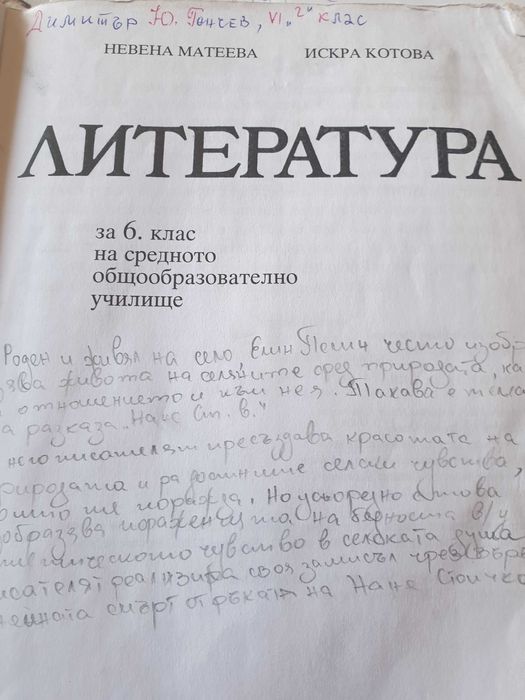 Димитър Ю. Гончев, VI "г" клас
НЕВЕНА МАТЕЕВА ИСКРА КОТОВА
ЛИТЕРАТУРА
за 6. клас
на средното
общообразователно
училище
Роден и живял на село Елин Пелин често изобр
зява живота на селяните сред природата, ка
отношението и към нея. Такава е тема
а разказа "Нане Ст. в."
него писателят пресъздава красотата на
природата и радостните селски чувства,
поражда. Но успоредно с това
образява поражен на бедността в/у
чувство в селската душа
исателят реализира своя замисъл чрез
смърт от ръката на Нане Стоичко